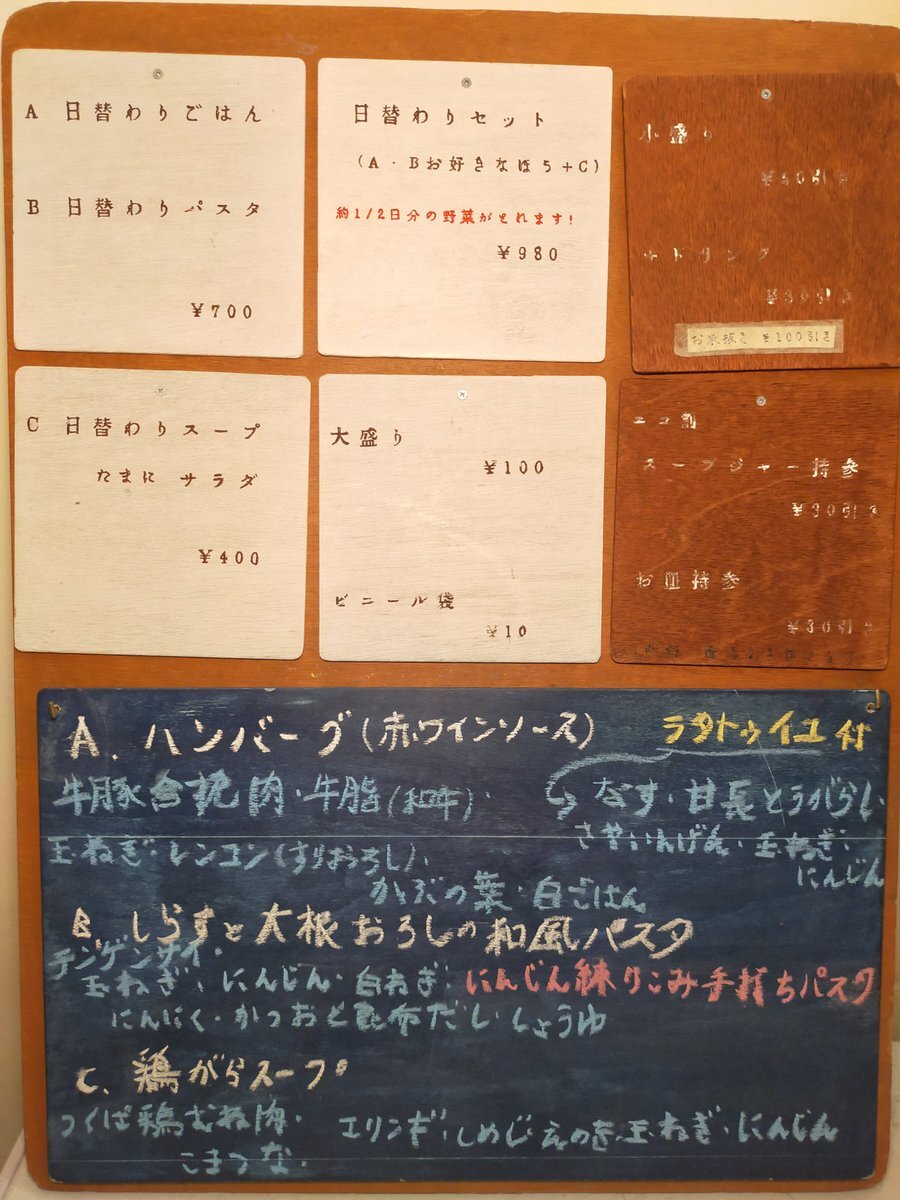 A 日替わりごはん
B 日替わりパスタ
¥700
日替わりセット
(A・Bお好きなほう+C)
約1/2日分の野菜がとれます!
¥980
小盛り
¥50引き
+ドリンク
お米抜き ¥100引き
C 日替わりスープ
たまに サラダ
¥400
大盛り
¥100
ビニール袋
¥10
エコ割
スープジャー持参
¥30引き
お皿持参
¥30引き
A. ハンバーグ(赤ワインソース)
ラタトゥイユ付
牛豚合挽肉・牛脂(和牛)・
なす・甘長とうがらし
玉ねぎ・レンコン(すりおろし)、
さやいんげん・玉ねぎ・
にんじん
かぶの葉・白ごはん
B. しらすと大根おろしの和風パスタ
チンゲンサイ・
玉ねぎ・にんじん・白ねぎ・にんじん練りこみ手打ちパスタ
にんにく・かつおと昆布だし・しょうゆ
C. 鶏がらスープ
つくば鶏むね肉・
エリンギ・しめじ・えのき・玉ねぎ・にんじん
こまつな・